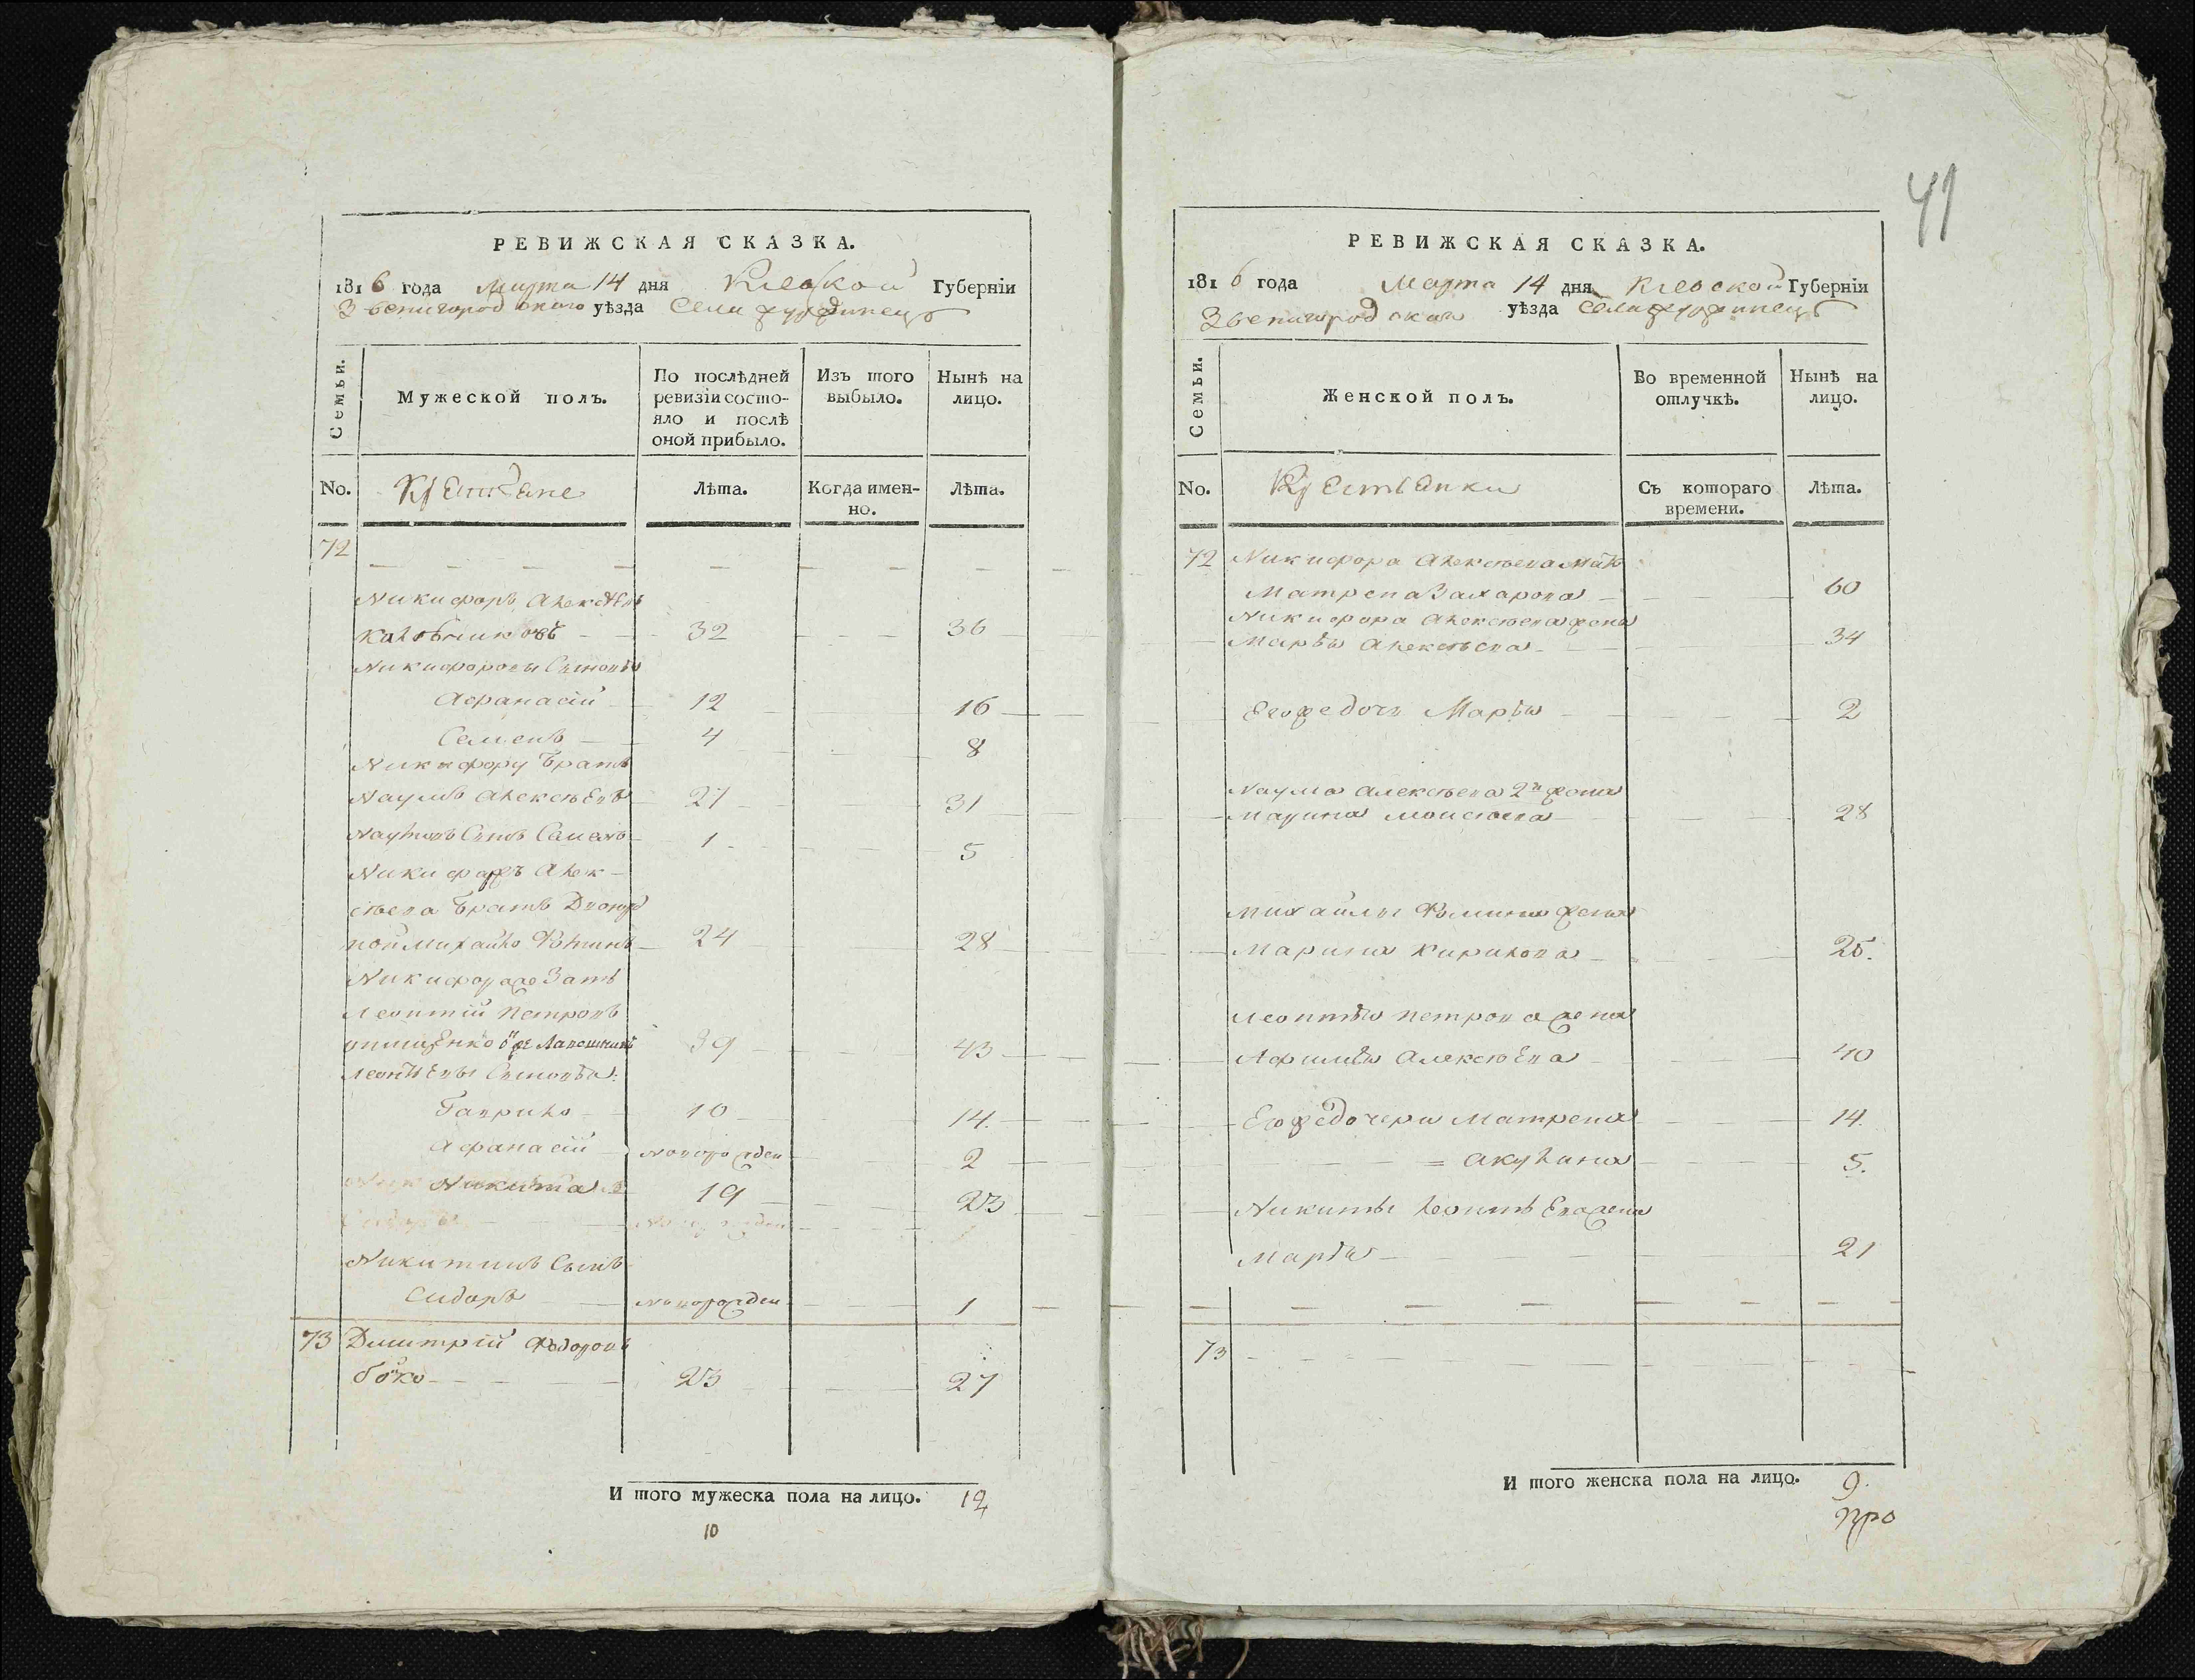 РЕВИЖСКАЯ СКАЗКА.
1816 года Марта 14 дня Киевской Губерніи
Звенигородскаго уѣзда Села
Семьи.
Мужеской полъ.
По послѣдней ревизіи состояло и послѣ оной прибыло.
Изъ того выбыло.
Нынѣ на лицо.
No. Крестьяне Лѣта. Когда именно. Лѣта.
72
Никифоръ Алексѣевъ
32 36
Никифоровы Сыновья
Афанасій 12 16
Семенъ 4 8
Никифору Братъ
Наумъ Алексѣевъ 27 31
Наумовъ Сынъ Семенъ 1 5
Никифора Алек-
сѣева Братъ Двоюро
ной Михайло Фоминъ 24 28
Никифора же Зять
Леонтій Петровъ
онъ же 39 43
Леонтіевы Сыновья:
Гаврило 10 14.
Афанасій новорожден 2
Никита 19 23
Никитинъ Сынъ
Сидоръ новорожден 1
73 Дмитрій Федоровъ
23 27
И того мужеска пола на лицо. 12
10
41
РЕВИЖСКАЯ СКАЗКА.
1816 года Марта 14 дня Киевской Губерніи
Звенигородскаго уѣзда Села
Семьи.
Женской полъ.
Во временной отлучкѣ.
Нынѣ на лицо.
No. Крестьянки Съ котораго времени. Лѣта.
72 Никифора Алексѣева мать
Матрена Захарова 60
Никифора Алексѣева жена
Марья Алексѣева 34
Его же дочь Марья 2
Наума Алексѣева 2я жена
Марина Моисѣева 28
Михайлы Фомина жена
Марина Кирилова 25.
Леонтья Петрова жена
Афимья Алексѣева 40
Его же дочери Матрена 14.
= Акулина 5.
Никиты Леонтьева жена
Марья 21
73
И того женска пола на лицо. 9.
про